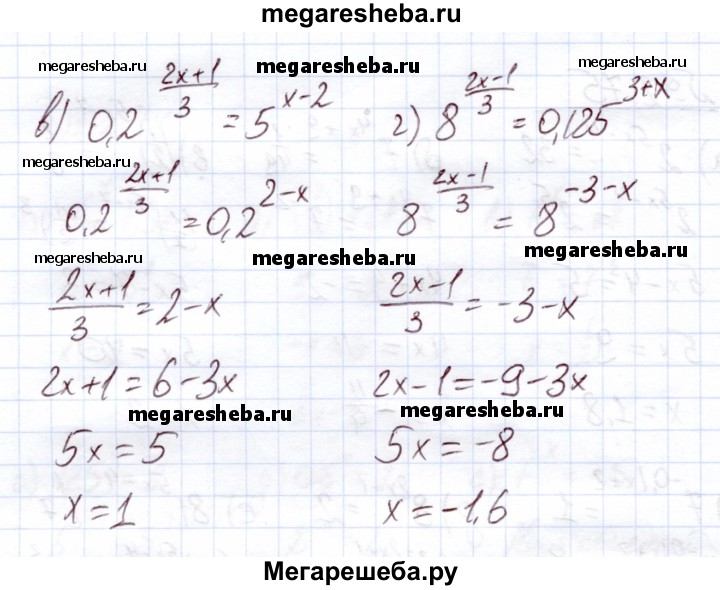 megaresheba.ru
megaresheba.ru megaresheba.ru megaresheba.ru
в) 0,2^((2x+1)/3) = 5^(x-2)
г) 8^((2x-1)/3) = 0,125^(3+x)
megaresheba.ru megaresheba.ru
0,2^((2x+1)/3) = 0,2^(2-x)
8^((2x-1)/3) = 8^(-3-x)
megaresheba.ru megaresheba.ru megaresheba.ru
(2x+1)/3 = 2-x
(2x-1)/3 = -3-x
2x+1=6-3x
2x-1=-9-3x
megaresheba.ru megaresheba.ru
5x=5
5x=-8
megaresheba.ru megaresheba.ru
x=1
x=-1,6
Мегарешеба.ру